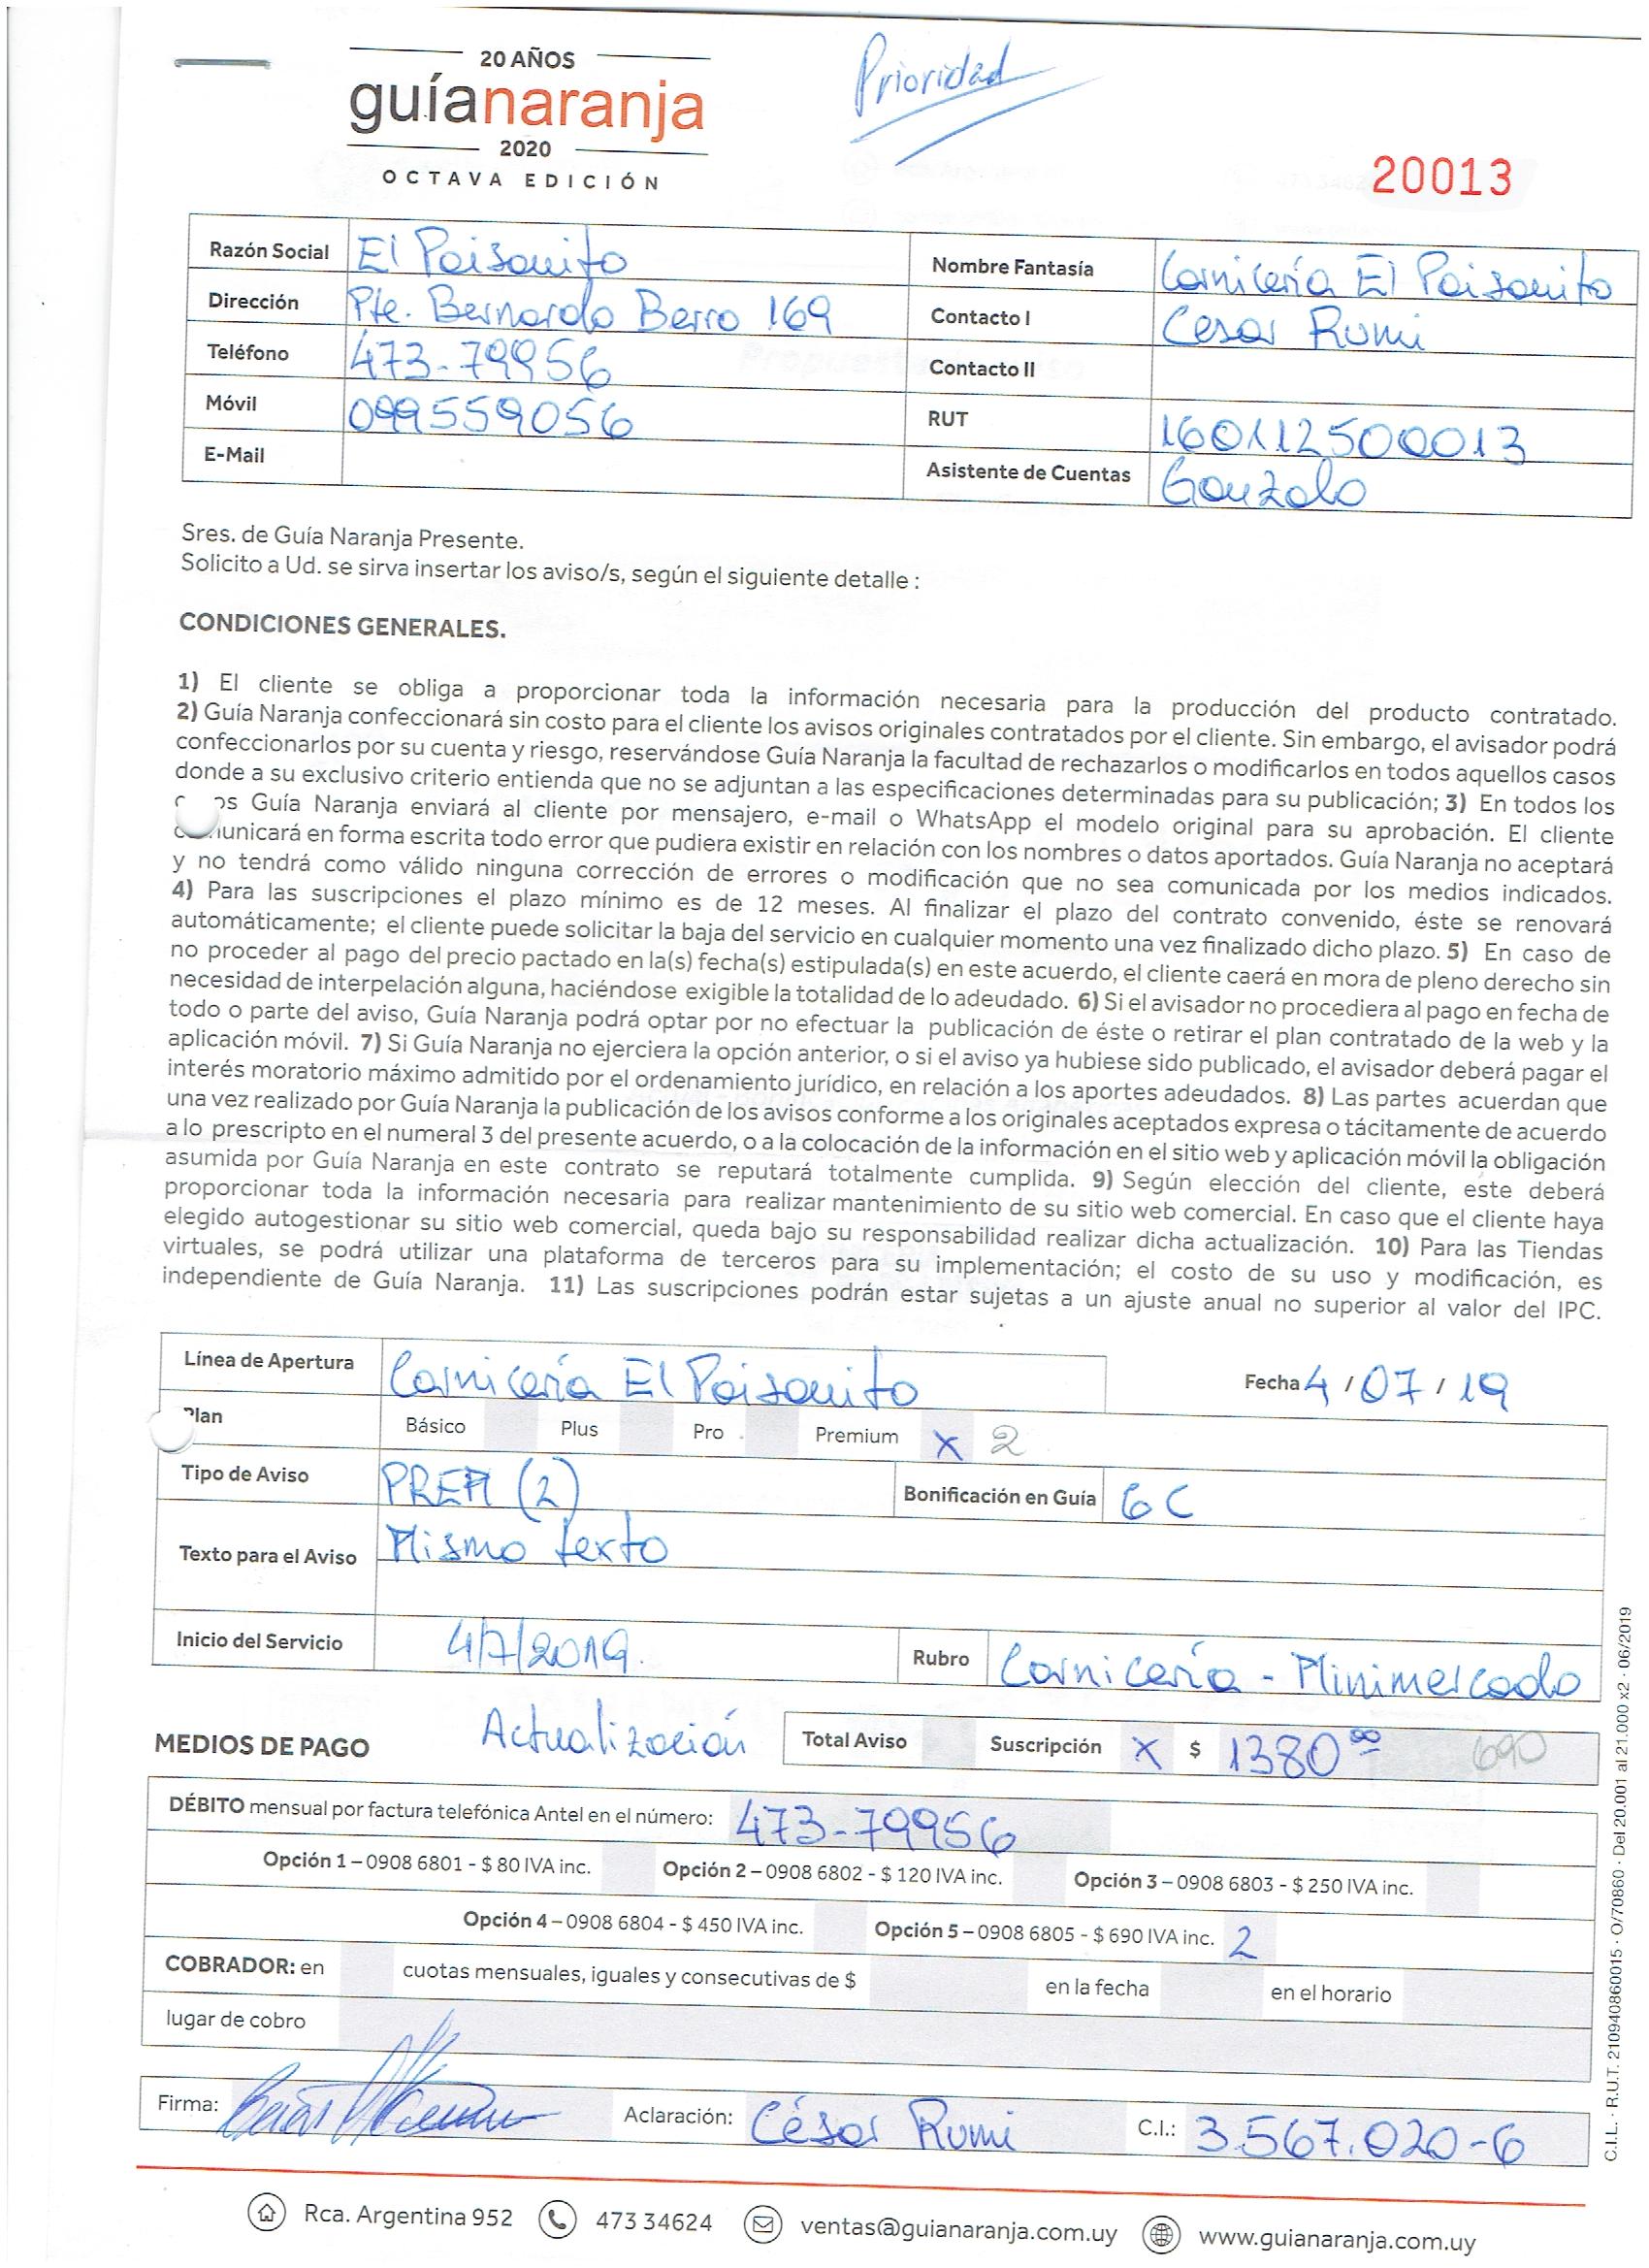 20 AÑOS
guíanaranja
2020
OCTAVA EDICIÓN
Prioridad
20013
Razón Social El Paisanito Nombre Fantasía Carnicería El Paisanito
Dirección Pte. Bernardo Berro 169 Contacto I Cesar Rumi
Teléfono 473-79956 Contacto II
Móvil 099559056 RUT 160112500013
E-Mail Asistente de Cuentas Gonzalo
Sres. de Guía Naranja Presente.
Solicito a Ud. se sirva insertar los aviso/s, según el siguiente detalle :
CONDICIONES GENERALES.
1) El cliente se obliga a proporcionar toda la información necesaria para la producción del producto contratado.
2) Guía Naranja confeccionará sin costo para el cliente los avisos originales contratados por el cliente. Sin embargo, el avisador podrá
confeccionarlos por su cuenta y riesgo, reservándose Guía Naranja la facultad de rechazarlos o modificarlos en todos aquellos casos
donde a su exclusivo criterio entienda que no se adjuntan a las especificaciones determinadas para su publicación; 3) En todos los
Guía Naranja enviará al cliente por mensajero, e-mail o WhatsApp el modelo original para su aprobación. El cliente
comunicará en forma escrita todo error que pudiera existir en relación con los nombres o datos aportados. Guía Naranja no aceptará
y no tendrá como válido ninguna corrección de errores o modificación que no sea comunicada por los medios indicados.
4) Para las suscripciones el plazo mínimo es de 12 meses. Al finalizar el plazo del contrato convenido, éste se renovará
automáticamente; el cliente puede solicitar la baja del servicio en cualquier momento una vez finalizado dicho plazo. 5) En caso de
no proceder al pago del precio pactado en la(s) fecha(s) estipulada(s) en este acuerdo, el cliente caerá en mora de pleno derecho sin
necesidad de interpelación alguna, haciéndose exigible la totalidad de lo adeudado. 6) Si el avisador no procediera al pago en fecha de
todo o parte del aviso, Guía Naranja podrá optar por no efectuar la publicación de éste o retirar el plan contratado de la web y la
aplicación móvil. 7) Si Guía Naranja no ejerciera la opción anterior, o si el aviso ya hubiese sido publicado, el avisador deberá pagar el
interés moratorio máximo admitido por el ordenamiento jurídico, en relación a los aportes adeudados. 8) Las partes acuerdan que
una vez realizado por Guía Naranja la publicación de los avisos conforme a los originales aceptados expresa o tácitamente de acuerdo
a lo prescripto en el numeral 3 del presente acuerdo, o a la colocación de la información en el sitio web y aplicación móvil la obligación
asumida por Guía Naranja en este contrato se reputará totalmente cumplida. 9) Según elección del cliente, este deberá
proporcionar toda la información necesaria para realizar mantenimiento de su sitio web comercial. En caso que el cliente haya
elegido autogestionar su sitio web comercial, queda bajo su responsabilidad realizar dicha actualización. 10) Para las Tiendas
virtuales, se podrá utilizar una plataforma de terceros para su implementación; el costo de su uso y modificación, es
independiente de Guía Naranja. 11) Las suscripciones podrán estar sujetas a un ajuste anual no superior al valor del IPC.
Línea de Apertura Carnicería El Paisanito Fecha 4 / 07 / 19
Plan Básico Plus Pro Premium X 2
Tipo de Aviso PREM (2) Bonificación en Guía 6C
Texto para el Aviso Mismo texto
Inicio del Servicio 4/7/2019. Rubro Carnicería - Minimercado
MEDIOS DE PAGO Actualización Total Aviso Suscripción X $ 1380 00 690
DÉBITO mensual por factura telefónica Antel en el número: 473-79956
Opción 1 – 0908 6801 - $ 80 IVA inc. Opción 2 – 0908 6802 - $ 120 IVA inc. Opción 3 – 0908 6803 - $ 250 IVA inc.
Opción 4 – 0908 6804 - $ 450 IVA inc. Opción 5 – 0908 6805 - $ 690 IVA inc. 2
COBRADOR: en cuotas mensuales, iguales y consecutivas de $ en la fecha en el horario
lugar de cobro
Firma: Aclaración: César Rumi C.I.: 3.567.020-6
Rca. Argentina 952 473 34624 ventas@guianaranja.com.uy www.guianaranja.com.uy
C.I.L. · R.U.T. 210940860015 · O/70860 · Del 20.001 al 21.000 x2 · 06/2019